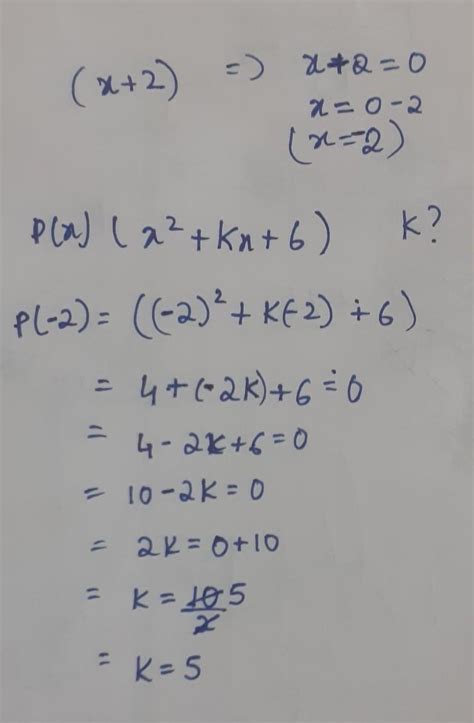 (x+2) => x+2=0
x=0-2
(x=-2)
P(x) (x²+Kx+6) K?
P(-2) = ((-2)²+K(-2)+6)
= 4+(-2K)+6=0
= 4-2K+6=0
= 10-2K=0
= 2K=0+10
= K=10/2 5
= K=5